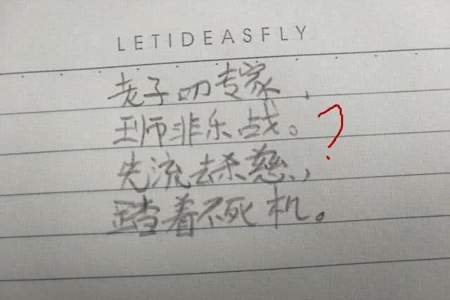 LETIDEASFLY
老子叨专家，
王师非乐战。
先流去杀慈，
踏着不死机。
?